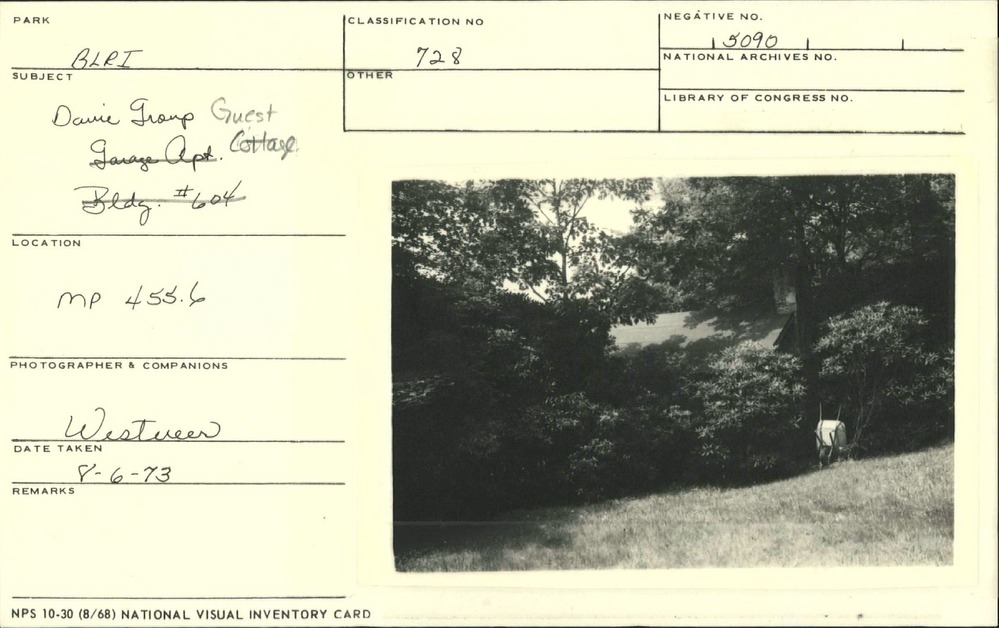 PARK
BLRI
CLASSIFICATION NO
728
NEGATIVE NO.
5090
NATIONAL ARCHIVES NO.
SUBJECT
OTHER
LIBRARY OF CONGRESS NO.
Guest
Garage Apt. Cottage
Bldg. #604
LOCATION
MP 455.6
PHOTOGRAPHER & COMPANIONS
Westveer
DATE TAKEN
8-6-73
REMARKS
NPS 10-30 (8/68) NATIONAL VISUAL INVENTORY CARD